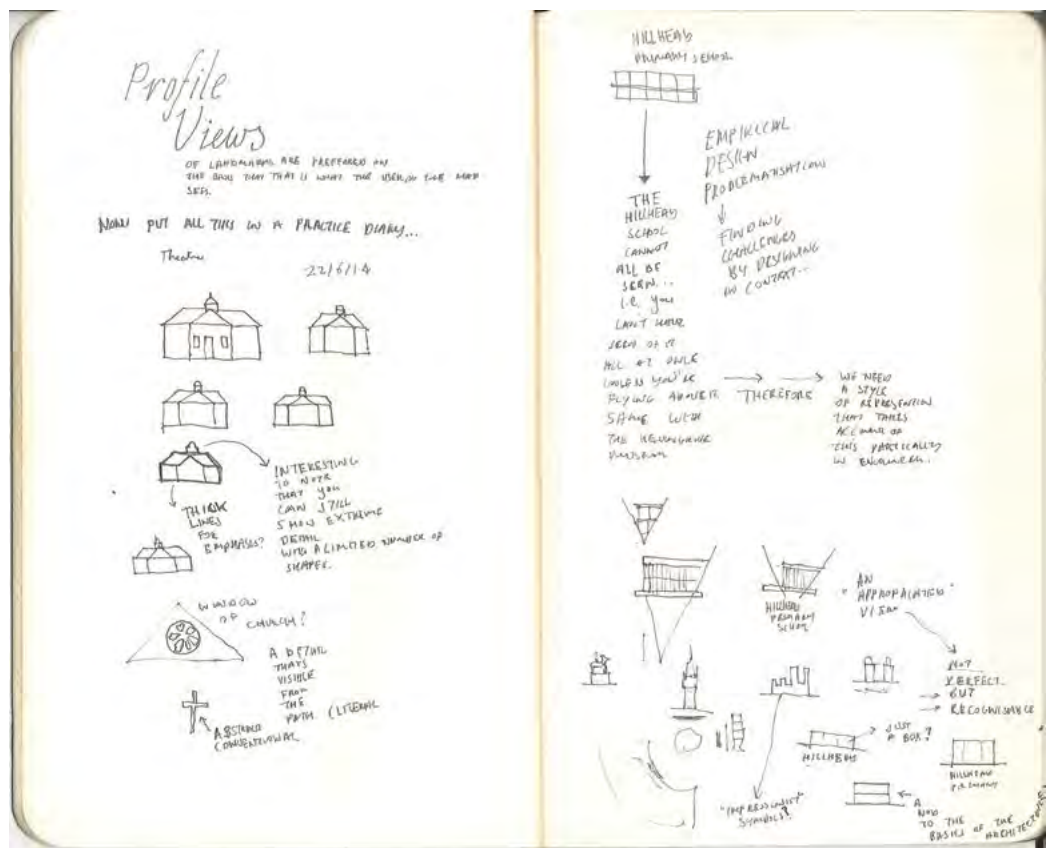 Profile
Views
OF LANDMARKS ARE PREFERRED ON
THE BASIS THAT THAT IS WHAT THE USER OF THE MAP
SEES.
NOW PUT ALL THIS IN A PRACTICE DIARY...
Theatre
22/6/14
INTERESTING
TO NOTE
THAT YOU
CAN STILL
SHOW EXTREME
DETAIL
WITH A LIMITED NUMBER OF
SHAPES.
THICK
LINES
FOR
EMPHASIS?
WINDOW
OF
CHURCH?
A DETAIL
THATS
VISIBLE
FROM
THE
PATH (LITERAL
ABSTRACT
CONVENTIONAL
HILLHEAD
PRIMARY SCHOOL
EMPIRICAL
DESIGN
PROBLEMATISATION
FINDING
CHALLENGES
BY DESIGNING
IN CONTEXT...
THE
HILLHEAD
SCHOOL
CANNOT
ALL BE
SEEN...
i.e. you
CAN'T HAVE
SEEN OF IT
ALL AT ONCE
UNLESS YOU'RE
FLYING ABOVE IT
SAME WITH
THE KELVINGROVE
THEREFORE
WE NEED
A STYLE
OF REPRESENTION
THAT TAKES
ACCOUNT OF
THIS PARTIALITY
IN
HILLHEAD
PRIMARY
SCHOOL
AN
"APPROPRIATED"
VIEW
NOT
PERFECT
BUT
RECOGNISABLE
JUST
A BOX?
HILLHEAD
HILLHEAD
PRIMARY
"IMPRESSIONIST"
SYMBOLS?
A
NOD
TO THE
BASICS OF THE
ARCHITECTURE